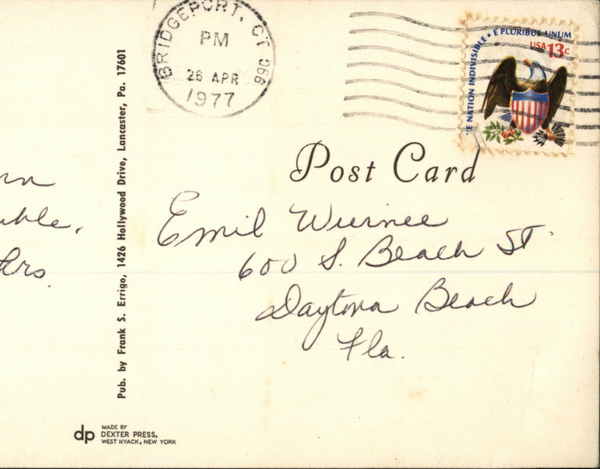 BRIDGEPORT, CT 066
PM
26 APR
1977
E NATION INDIVISIBLE • E PLURIBUS UNUM
USA 13c
Post Card
Emil Wurnee
600 S. Beach ST.
Daytona Beach
Fla.
Pub. by Frank S. Errigo, 1426 Hollywood Drive, Lancaster, Pa. 17601
dp
MADE BY
DEXTER PRESS,
WEST NYACK, NEW YORK